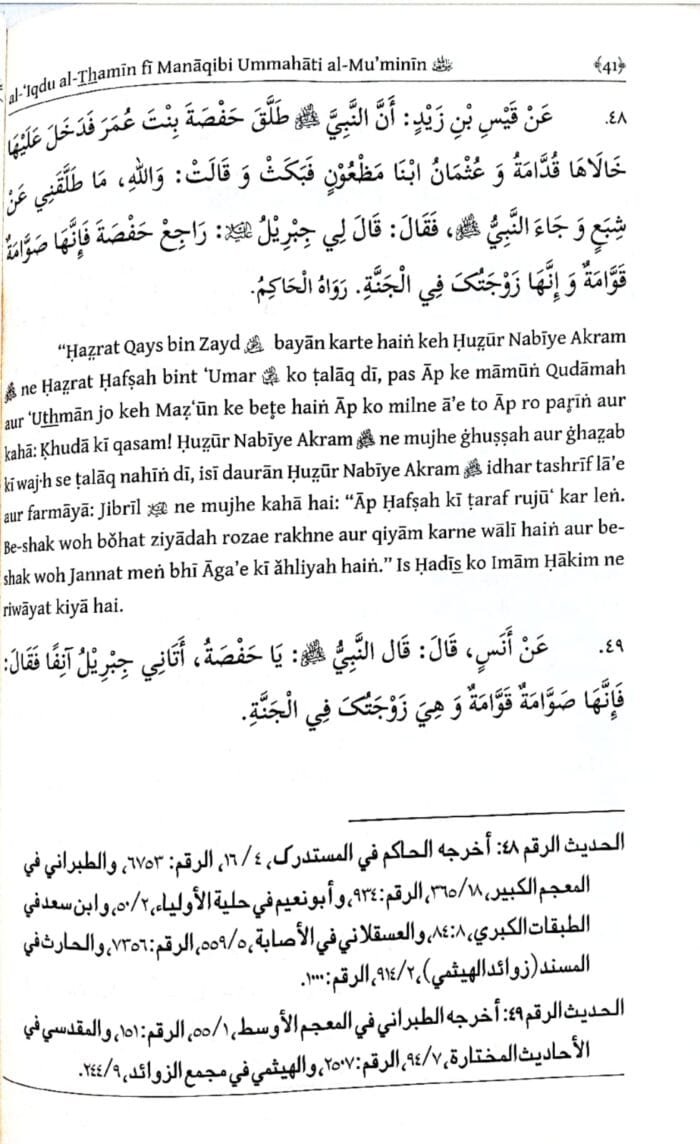 al-‘Iqdu al-T͟hamīn fī Manāqibi Ummahāti al-Mu’minīn ﴾41﴿
٤٨. عَنْ قَيْسِ بْنِ زَيْدٍ: أَنَّ النَّبِيَّ ﷺ طَلَّقَ حَفْصَةَ بِنْتَ عُمَرَ فَدَخَلَ عَلَيْهَا
خَالَاهَا قُدَّامَةُ وَ عُثْمَانُ ابْنَا مَظْعُوْنٍ فَبَكَتْ وَ قَالَتْ: وَاللهِ، مَا طَلَّقَنِي عَنْ
شِبَعٍ وَ جَاءَ النَّبِيُّ ﷺ، فَقَالَ: قَالَ لِي جِبْرِيْلُ : رَاجِعْ حَفْصَةَ فَإِنَّهَا صَوَّامَةٌ
قَوَّامَةٌ وَ إِنَّهَا زَوْجَتُکَ فِي الْجَنَّةِ. رَوَاهُ الْحَاكِمُ.
“Ḥaz̤rat Qays bin Zayd bayān karte haiṅ keh Ḥuẓūr Nabīye Akram
ﷺ ne Ḥaz̤rat Ḥafṣah bint ‘Umar ko t̤alāq dī, pas Āp ke māmūṅ Qudāmah
aur ‘Ut͟hmān jo keh Maẓ‘ūn ke bet̤e haiṅ Āp ko milne ā’e to Āp ro paṛīṅ aur
kahā: Ḳhudā kī qasam! Ḥuẓūr Nabīye Akram ﷺ ne mujhe ġhuṣṣah aur ġhaẓab
kī waj·h se t̤alāq nahīṅ dī, isī daurān Ḥuẓūr Nabīye Akram ﷺ idhar tashrīf lā’e
aur farmāyā: Jibrīl ne mujhe kahā hai: “Āp Ḥafṣah kī t̤araf rujū‘ kar leṅ.
Be-shak woh bŏhat ziyādah rozae rakhne aur qiyām karne wālī haiṅ aur be-
shak woh Jannat meṅ bhī Āga’e kī ăhliyah haiṅ.” Is Ḥadīs̲ ko Imām Ḥākim ne
riwāyat kiyā hai.
٤٩. عَنْ أَنَسٍ، قَالَ: قَال النَّبِيُّ ﷺ: يَا حَفْصَةُ، أَتَانِي جِبْرِيْلُ آنِفًا فَقَالَ:
فَإِنَّهَا صَوَّامَةٌ قَوَّامَةٌ وَ هِيَ زَوْجَتُکَ فِي الْجَنَّةِ.
الحديث الرقم ٤٨: أخرجه الحاكم في المستدرک، ٤/ ١٦، الرقم: ٦٧٥٣، والطبراني في
المعجم الكبير، ١٨/ ٣٦٥، الرقم: ٩٣٤، وأبونعيم في حلية الأولياء، ٢/ ٥٠، وابن سعد في
الطبقات الكبري، ٨: ٨٤، والعسقلاني في الأصابة، ٥/ ٥٥٩، الرقم: ٧٣٥٦، والحارث في
المسند (زوائد الهيثمي)، ٢/ ٩١٤، الرقم: ١٠٠٠.
الحديث الرقم ٤٩: أخرجه الطبراني في المعجم الأوسط، ١/ ٥٥، الرقم: ١٥١، والمقدسي في
الأحاديث المختارة، ٧/ ٩٤، الرقم: ٢٥٠٧، والهيثمي في مجمع الزوائد، ٩/ ٢٤٤.